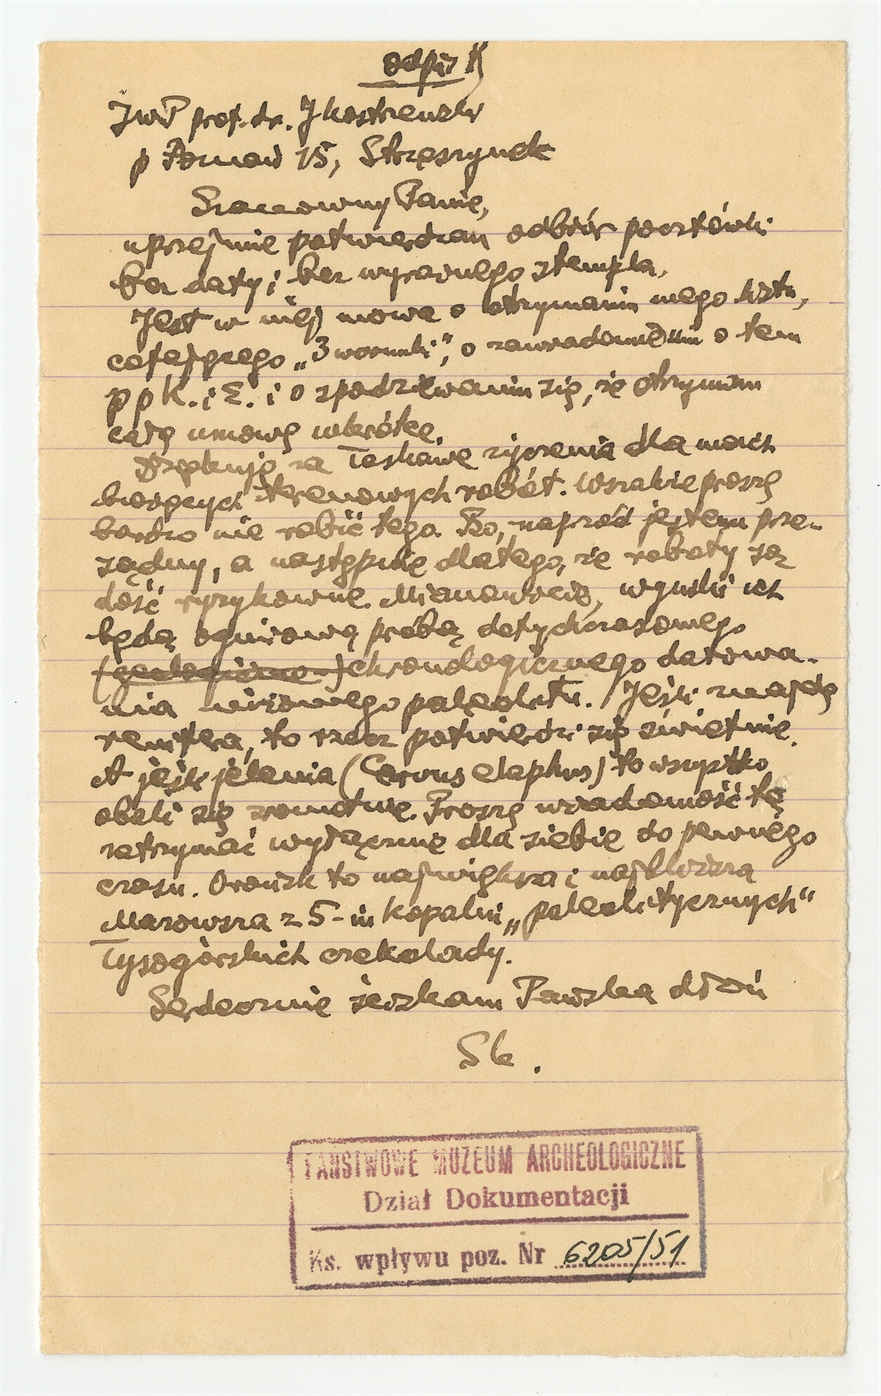 odpis K
JWP prof. dr. J Kostrzewski
p Poznań 15, Strzeszynek
Szanowny Panie,
uprzejmie potwierdzam odbiór pocztówki
bez daty i bez wyraźnego stempla.
Jest w niej mowa o otrzymaniu mego listu,
cofającego „3 warunki”, o zawiadomieniu o tem
p p K. i E. i o spodziewaniu się, że otrzymam
całą umowę wkrótce.
Dziękuję za łaskawe życzenia dla moich
bieżących terenowych robót. Wszakże proszę
bardzo nie robić tego. Bo, naprzód jestem prze-
sądny, a następnie dlatego, że roboty są
dość ryzykowne. Mianowicie, wyniki ich
będą ogniową próbą dotychczasowego
(geologiczno-) chronologicznego datowa-
nia paleolitu. Jeśli znajdę
renifera, to rzecz potwierdzi się świetnie.
A jeśli jelenia (Cervus elaphus) to wszystko
obali się sromotnie. Proszę wiadomość tę
zatrzymać wyłącznie dla siebie do pewnego
czasu. Orońsk to największa i najbliższa
Mazowsza z 5-iu kopalni „paleolitycznych”
łysogórskich czekolady.
Serdecznie ściskam Pańską dłoń
Sk.
PAŃSTWOWE MUZEUM ARCHEOLOGICZNE
Dział Dokumentacji
Ks. wpływu poz. Nr 6205/51